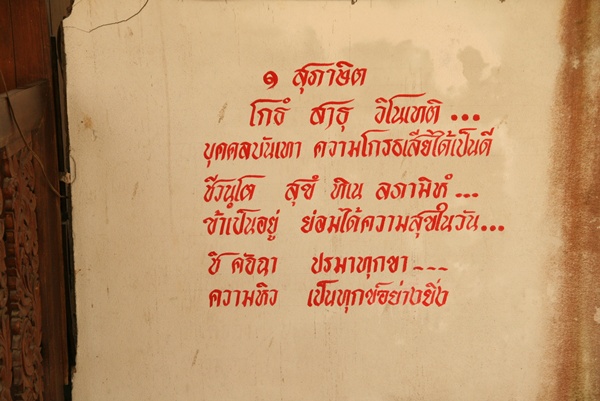 ๑ สุภาษิต
โกธํ สาธุ วิโนเทติ ...
บุคคลบันเทา ความโกรธเสียได้เป็นดี
ชีวนฺโต สุขํ ทิเน ลภามิหํ ...
ข้าเป็นอยู่ ย่อมได้ความสุขในวัน ...
ชิ คจิฉา ปรมาทุกขา ~~~
ความหิว เป็นทุกข์อย่างยิ่ง